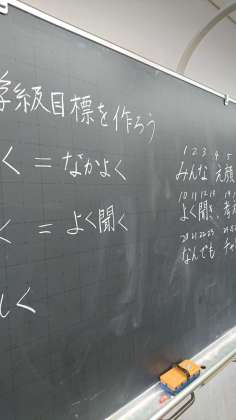 学級目標を作ろう
く = なかよく
く = よく聞く
しく
1 2 3 4 5
みんな 笑顔
10 11 12 13
よく聞き、考え
20 21 22 23
なんでも チャ